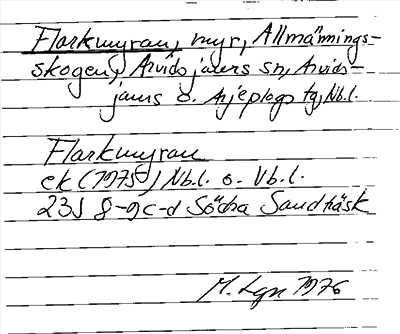 Flarkmyran, myr, Allmännings-
skogen, Arvidsjaurs sn, Arvids-
jaurs o. Arjeplogs tg, Nb.l.
Flarkmyran
ek (1975) Nb.l. o. Vb.l.
23J 8-9c-d Södra Sandträsk
M. Lgn 1976